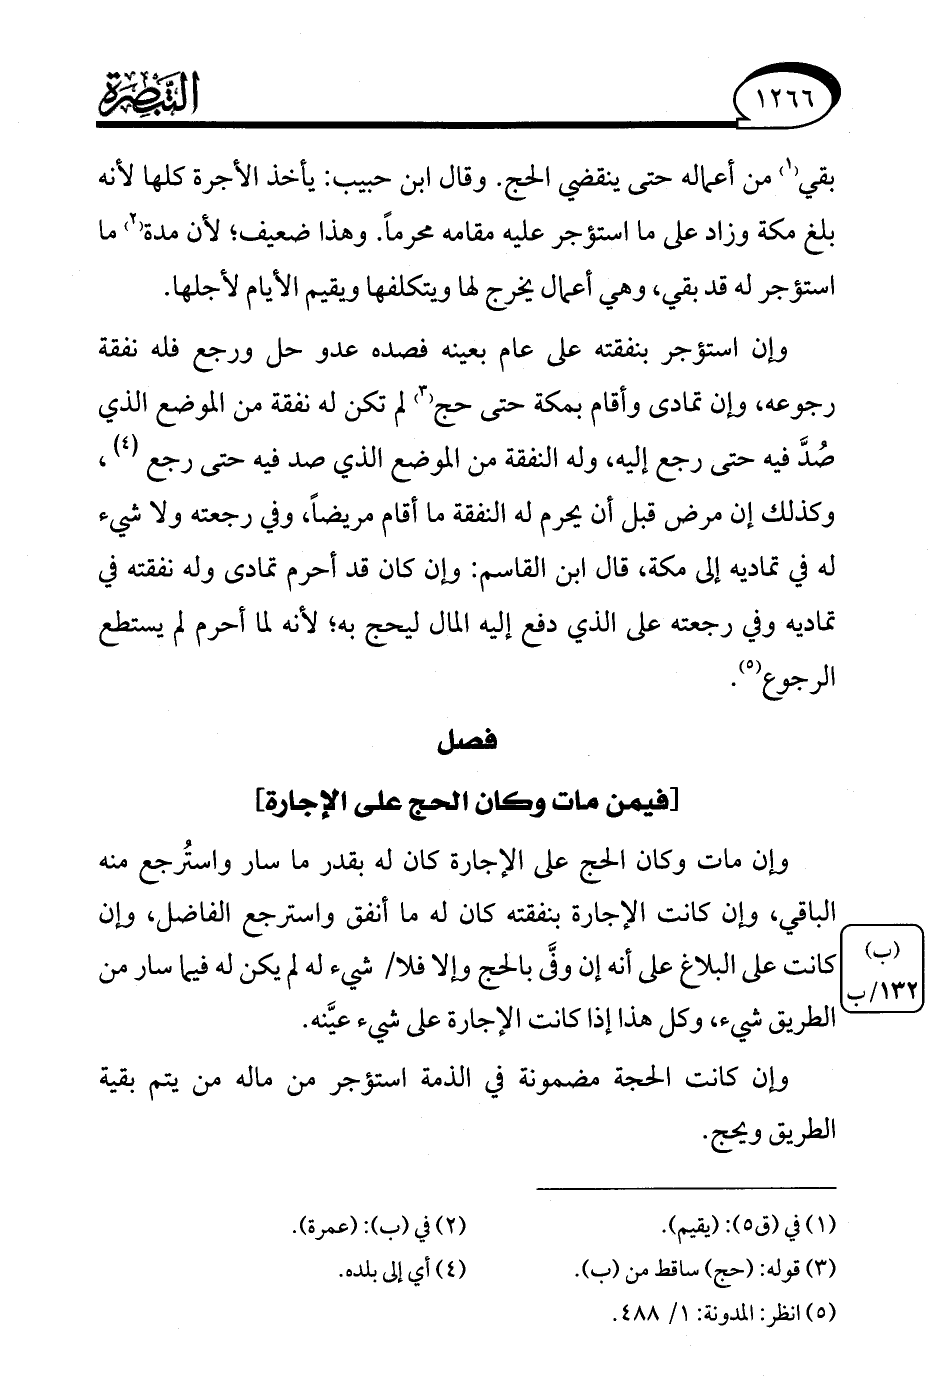 التبصرة
١٢٦٦
بقي(١) من أعماله حتى ينقضي الحج. وقال ابن حبيب: يأخذ الأجرة كلها لأنه
بلغ مكة وزاد على ما استؤجر عليه مقامه محرماً. وهذا ضعيف؛ لأن مدة(٢) ما
استؤجر له قد بقي، وهي أعمال يخرج لها ويتكلفها ويقيم الأيام لأجلها.
وإن استؤجر بنفقته على عام بعينه فصده عدو حل ورجع فله نفقة
رجوعه، وإن تمادى وأقام بمكة حتى حج(٣) لم تكن له نفقة من الموضع الذي
صُدَّ فيه حتى رجع إليه، وله النفقة من الموضع الذي صد فيه حتى رجع (٤)،
وكذلك إن مرض قبل أن يحرم له النفقة ما أقام مريضاً، وفي رجعته ولا شيء
له في تماديه إلى مكة، قال ابن القاسم: وإن كان قد أحرم تمادى وله نفقته في
تماديه وفي رجعته على الذي دفع إليه المال ليحج به؛ لأنه لما أحرم لم يستطع
الرجوع(٥).
فصل
[فيمن مات وكان الحج على الإجارة]
وإن مات وكان الحج على الإجارة كان له بقدر ما سار واستُرجع منه
الباقي، وإن كانت الإجارة بنفقته كان له ما أنفق واسترجع الفاضل، وإن
كانت على البلاغ على أنه إن وفَّى بالحج وإلا فلا/ شيء له لم يكن له فيما سار من
الطريق شيء، وكل هذا إذا كانت الإجارة على شيء عيَّنه.
(ب)
١٣٢/ب
وإن كانت الحجة مضمونة في الذمة استؤجر من ماله من يتم بقية
الطريق ويحج.
(١) في (ق٥): (يقيم).
(٢) في (ب): (عمرة).
(٣) قوله: (حج) ساقط من (ب).
(٤) أي إلى بلده.
(٥) انظر: المدونة: ١/ ٤٨٨.